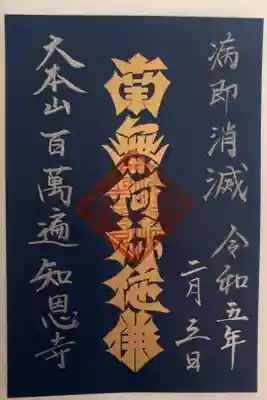 病即消滅
令和五年
二月三日
南無阿弥陀佛
大本山百萬遍知恩寺